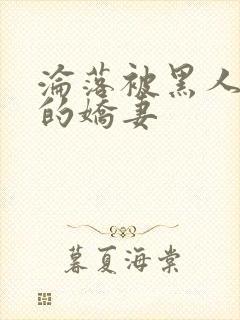 淪落被黑人
的嬌妻
暮夏海棠